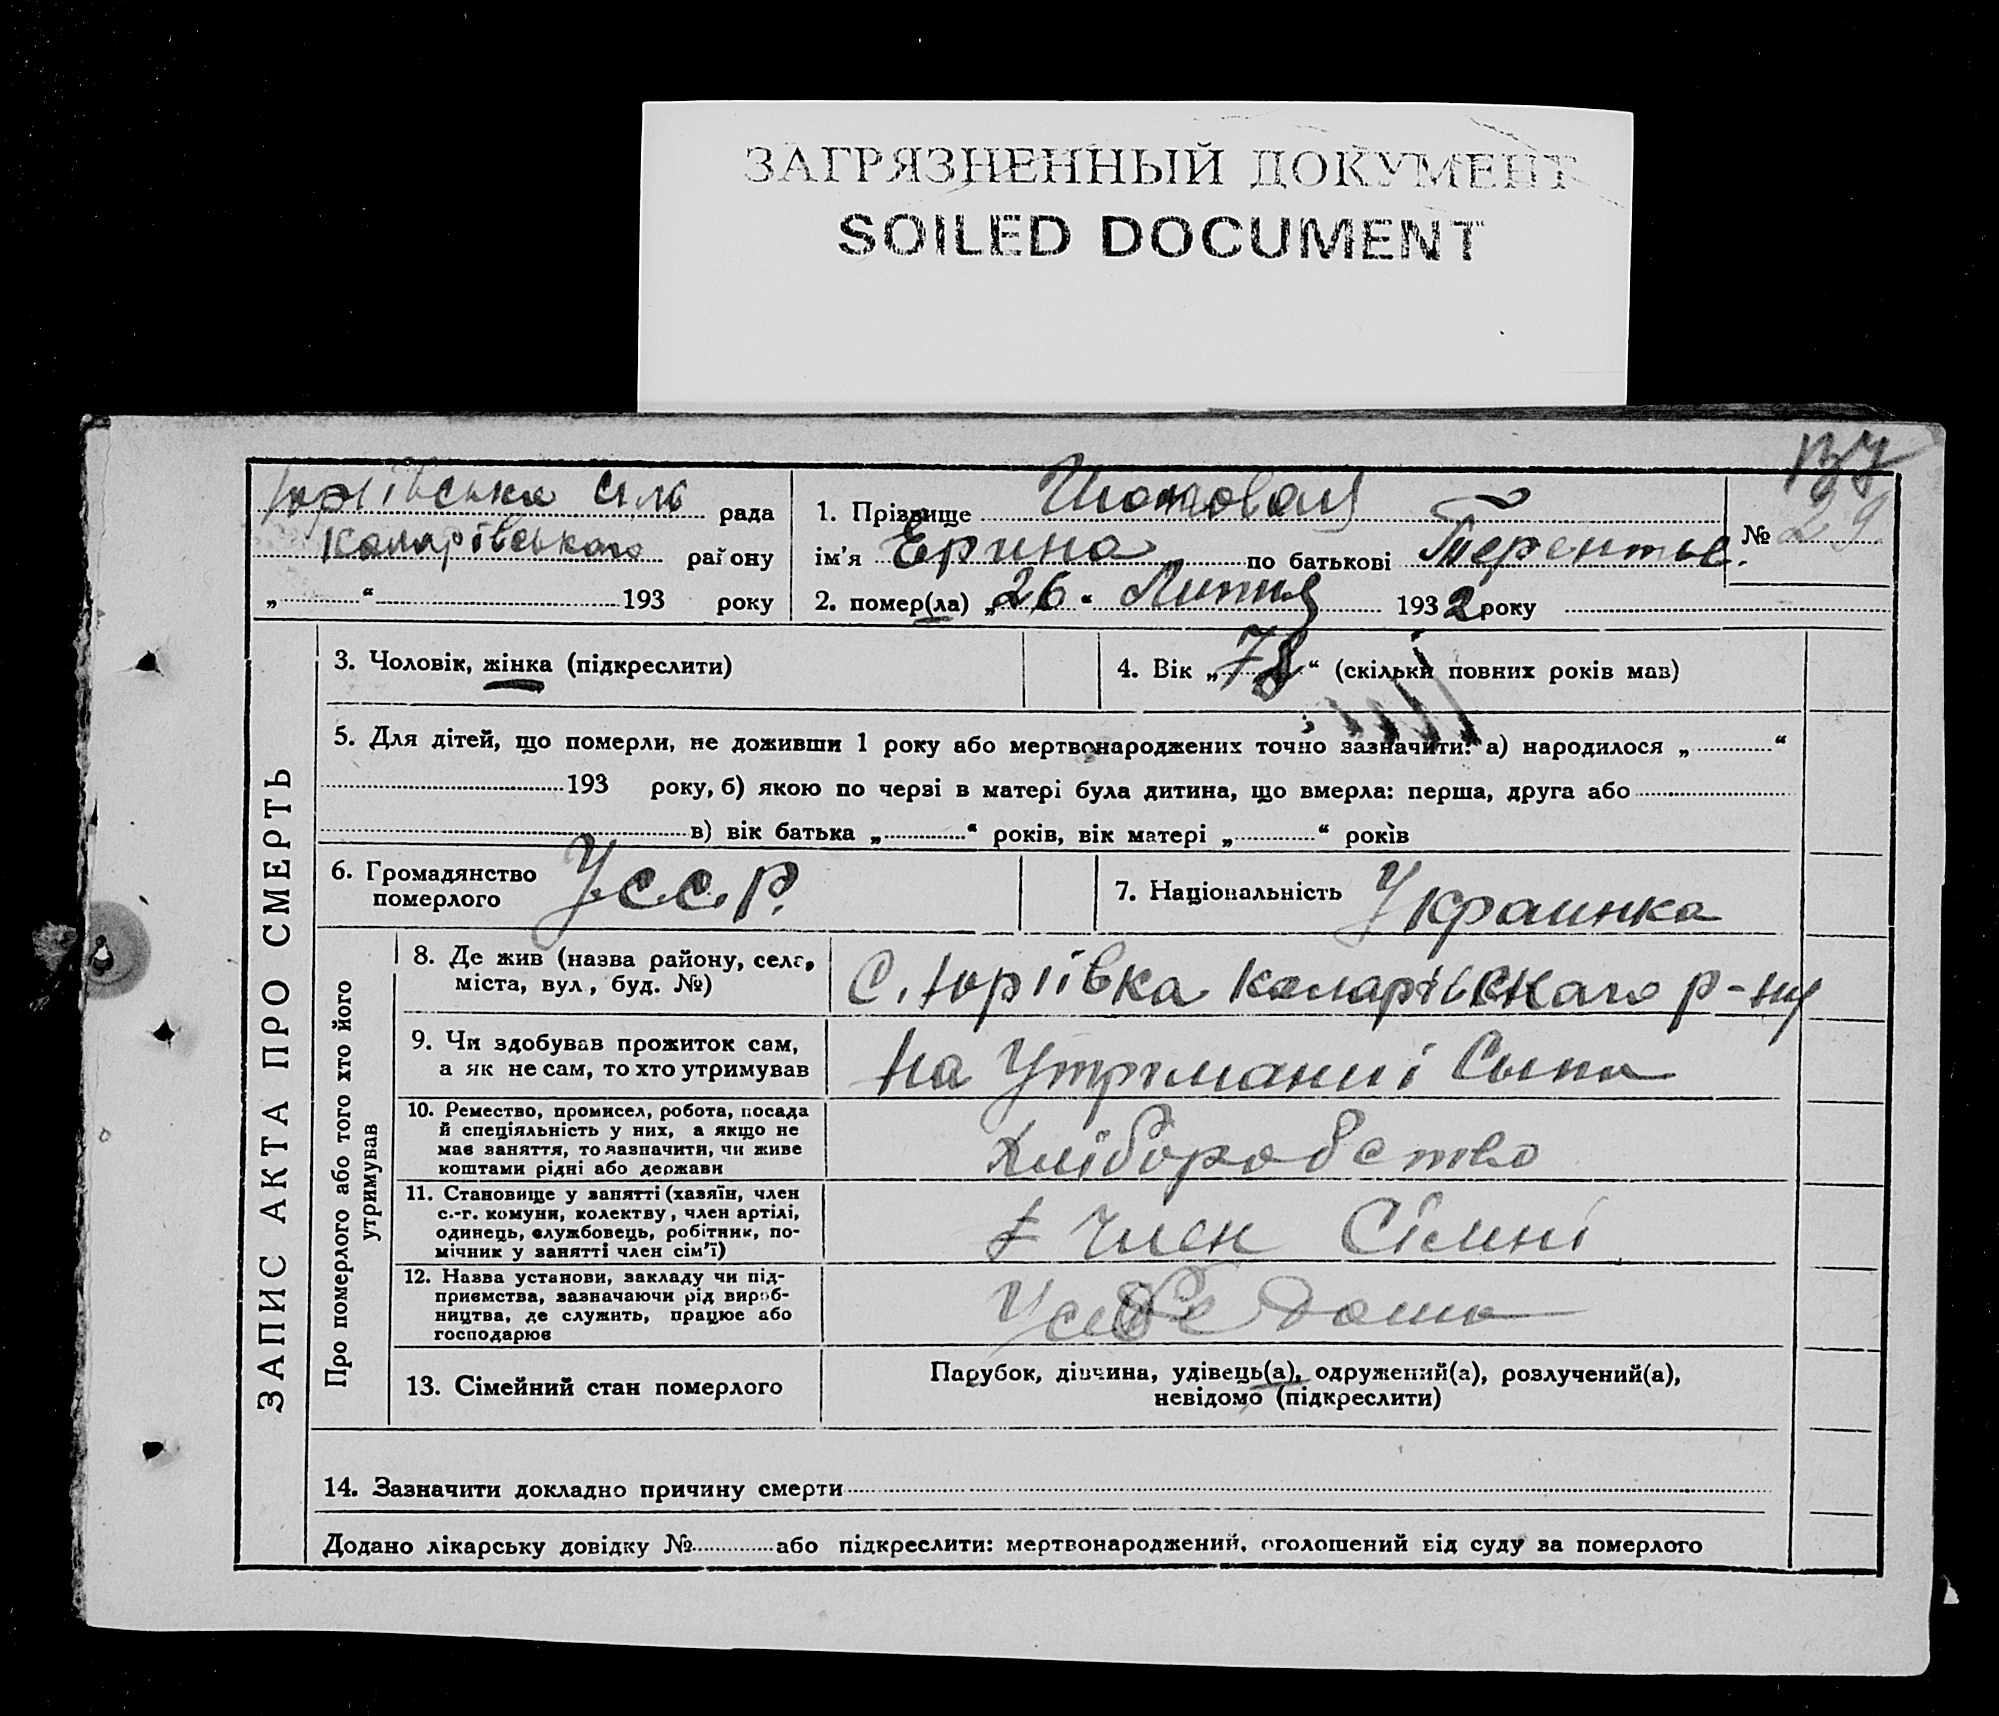 ЗАГРЯЗНЕННЫЙ ДОКУМЕНТ
SOILED DOCUMENT
137
Юріївська сіль рада
Коларівського району
„ “ 193 року
1. Прізвище
ім’я Ерина по батькові Терентьє.
№ 29
2. помер(ла) „26“ Липня 1932 року
ЗАПИС АКТА ПРО СМЕРТЬ
3. Чоловік, жінка (підкреслити)
4. Вік „78“ (скільки повних років мав)
5. Для дітей, що померли, не доживши 1 року або мертвонароджених точно зазначити: а) народилося „ “
193 року, б) якою по черзі в матері була дитина, що вмерла: перша, друга або
в) вік батька „ “ років, вік матері „ “ років
6. Громадянство
померлого
У.С.С.Р.
7. Національність Украинка
Про померлого або того хто його
утримував
8. Де жив (назва району, села,
міста, вул., буд. №)
С. Юріївка Коларівскаго р-ну
9. Чи здобував прожиток сам,
а як не сам, то хто утримував
На Утриманиі Сына
10. Ремество, промисел, робота, посада
й спеціяльність у них, а якщо не
має заняття, то зазначити, чи живе
коштами рідні або держави
Хліборобство
11. Становище у занятті (хазяїн, член
с.-г. комуни, колектву, член артілі,
одинець, службовець, робітник, по-
мічник у занятті член сім’ї)
Член Сімні
12. Назва установи, закладу чи під-
приємства, зазначаючи рід вироб-
ництва, де служить, працює або
господарює
У себе дома
13. Сімейний стан померлого
Парубок, дівчина, удівець(а), одружений(а), розлучений(а),
невідомо (підкреслити)
14. Зазначити докладно причину смерти
Додано лікарську довідку № або підкреслити: мертвонароджений, оголошений від суду за померлого